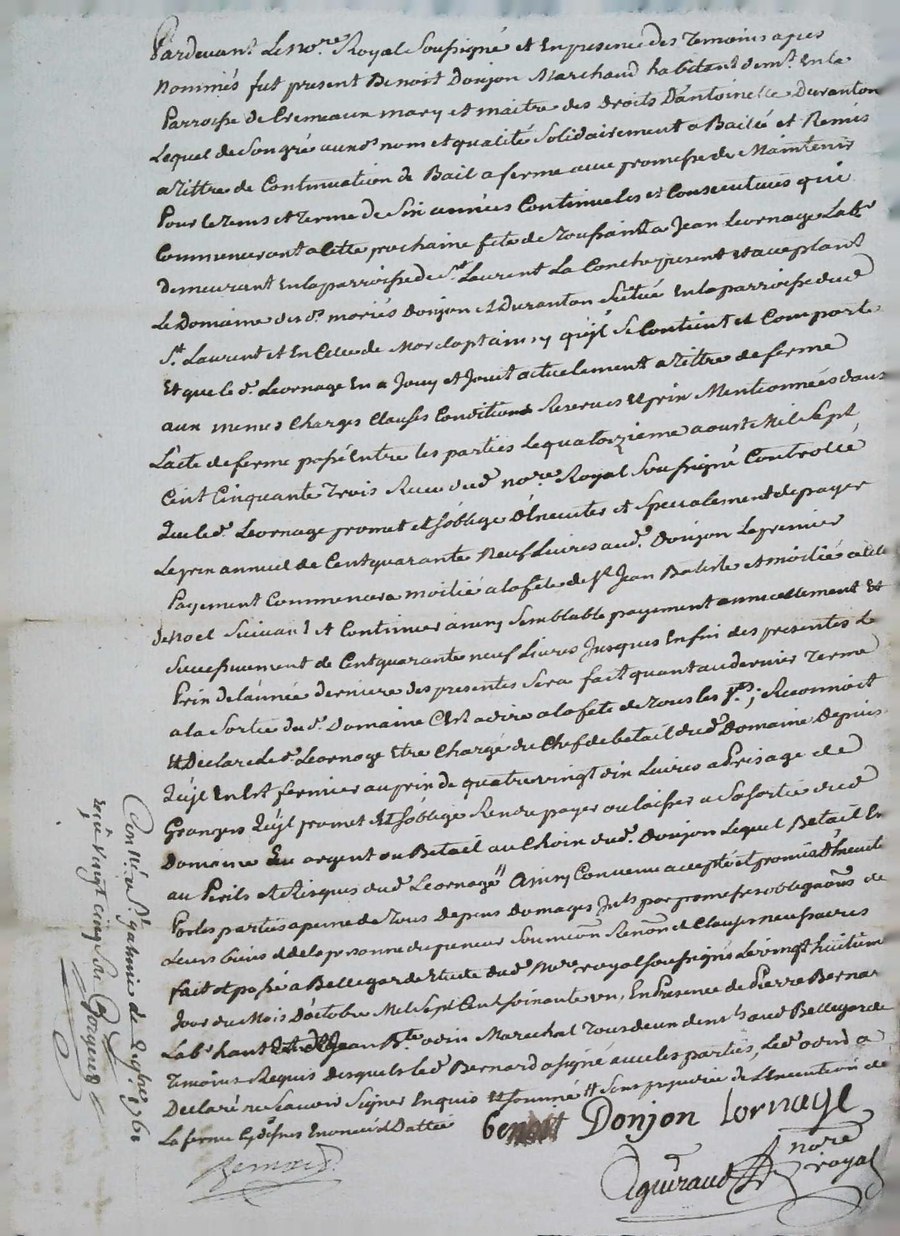 Pardevant Le no.re Royal Soussigné et En presence des Temoins apres
nommés fut present Benoit Donjon Marchand habitant En la
Parroisse de Cremeaux mary et maitre des droits D'antoinette Duranton
Lequel de Son gré aux.s nom et qualité Solidairement a Baillé et Remis
a Tittre de Continuation de Bail a ferme avec promesse de Maintenir
Pour le tems et terme de Six années Continueles et Consecutives qui
Commenceront a Cette prochaine fete de Toussaint a Jean Leornage Lab.r
Demeurant En la parroisse de S.t Laurent La Conche present et acceptant
Le Domaine desd.s mariés Donjon et Duranton Situé En la parroisse dud.
S.t Laurent et En Celle de Marclopt ainsy qu'jl Se Contient et Comporte
Et que led. Leornage En a Jouy et Jouit actuelement a Tittre de ferme
aux memes Charges Clauses Conditions Reserves et prix Mentionnées dans
L'acte de ferme passé Entre les parties Le quatorzieme aoust Mil Sept
Cent Cinquante Trois Receu dud. no.re Royal Soussigné Controllé
Que led. Leornage promet et s'oblige D'Executer et Specialement de payer
Le prix annuel de Cent quarante Neuf Livres aud. Donjon Le premier
Payement Commencera moitié a la fete de S.t Jean Batiste et moitié a celle
de Noel Suivant et Continuer ainsy Semblable payement annuellement et
Successivement de Cent quarante neuf Livres Jusques En fin des presentes Le
Prix de l'année derniere des presentes Sera fait quant au dernier Terme
a la Sortie dud. Domaine C'est a dire a la fete de Tous les S.ts; Reconnoit
et Declare Led. Leornage Etre Chargé du Chef de betail dud. Domaine Depuis
Qu'jl En Est fermier au prix de quatre vingt dix Livres a Prisage de
Grangers Qu'jl promet et s'oblige Rendre payer ou laisser a Sa Sortie dud.
Domaine En argent ou Betail au Choix dud. Donjon Lequel Betail En
au Perils et Risques dud. Leornage Ainsy Convenu accepté et promis D'Executer
Par les parties a peine de Tous Depens Domages Jnts par promesses obligaôns de
Leurs biens et de la personne du preneur Soumiôns Renôns et Clauses necessaires
fait et passé a Bellegarde Etude dud. No.re royal Soussigné Le vingt huitieme
Jour du Mois D'octobre Mil Sept Cent Soixante un, En Presence de Pierre Bernard
Lab.r hant et de Jean B.te odin Marechal Tous deux dem.ts aud Bellegarde
Temoins Requis desquels led. Bernard a signé avec les parties, Led. odin a
Declaré ne Savoir Signer Enquis et Sommé Sans prejudice de L'Execution de
La ferme Cy dessus Enoncée et Dattée
Benoit Donjon Lornage
Bernard
Aguiraud no.re royal
Con.llé a S.t galmier le 1761
recu vingt cinq s.